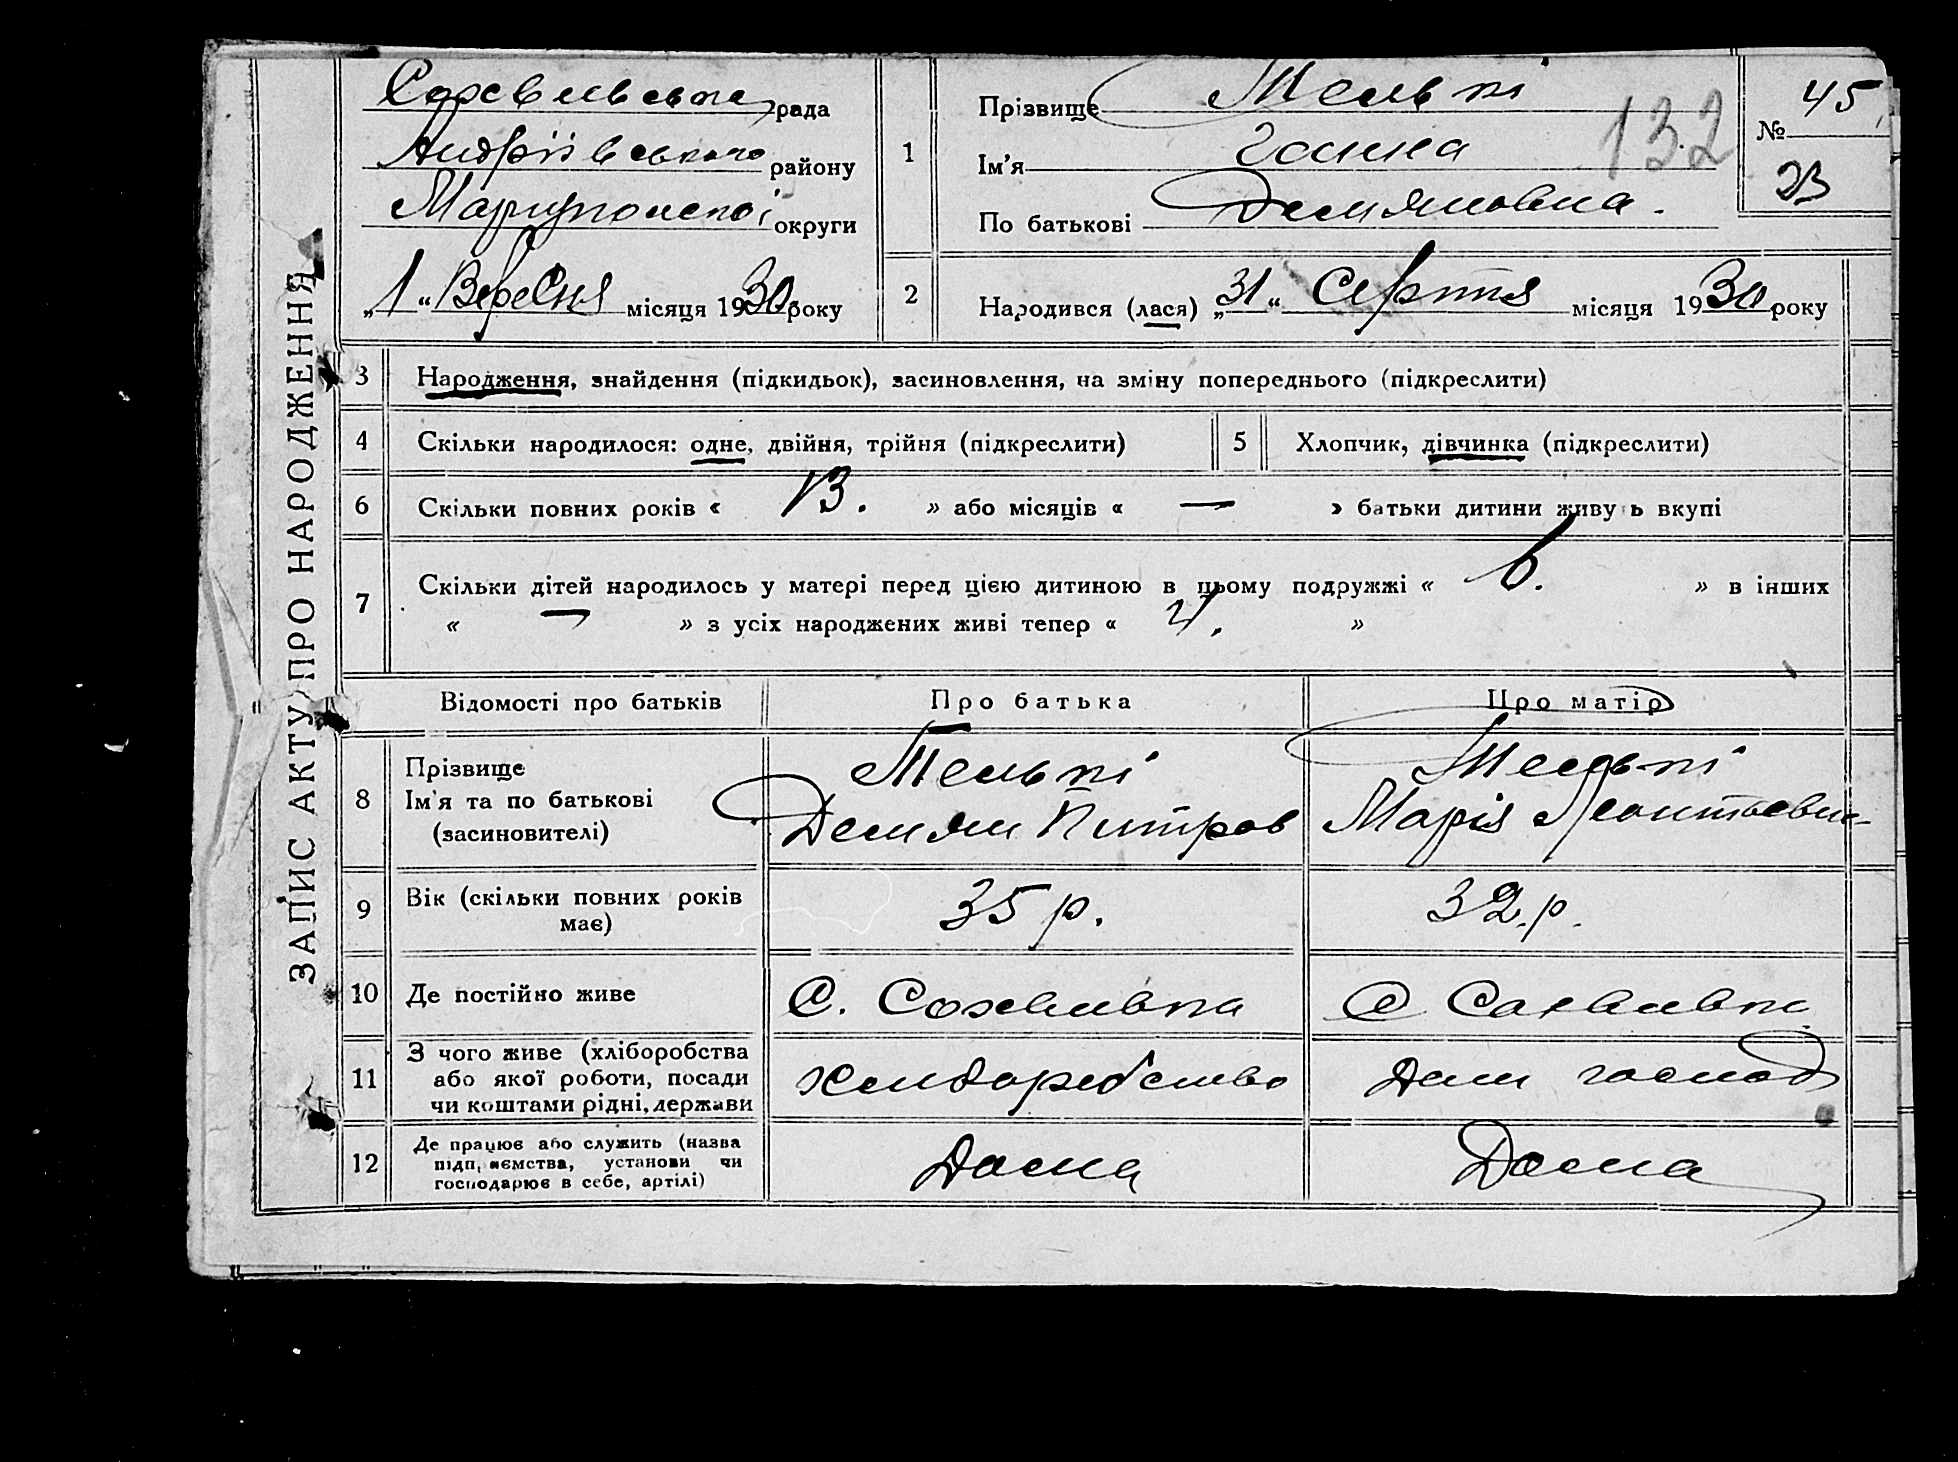 ЗАПИС АКТУ ПРО НАРОДЖЕННЯ
рада
Андріївського району
Маріупольскої округи
„1“ Вересня місяця 1930 року
1
Прізвище Тельпі
Ім'я Ганна
По батькові Демяновна.
132
№ 45
23
2
Народився (лася) „31“ Серпня місяця 1930 року
3 Народження, знайдення (підкидьок), засиновлення, на зміну попереднього (підкреслити)
4 Скільки народилося: одне, двійня, трійня (підкреслити)
5 Хлопчик, дівчинка (підкреслити)
6 Скільки повних років « 13. » або місяців « — » батьки дитини живуть вкупі
7 Скільки дітей народилось у матері перед цією дитиною в цьому подружжі « 6. » в інших
« — » з усіх народжених живі тепер « 4. »
Відомості про батьків Про батька Про матір
8 Прізвище
Ім'я та по батькові
(засиновителі)
Тельпі
Демян Питров
Тельпі
Марія Леонтьевна
9 Вік (скільки повних років
має)
35 р. 32 р.
10 Де постійно живе
С. С
11 З чого живе (хліборобства
або якої роботи, посади
чи коштами рідні, держави
Хлидоробство Дом господ
12 Де працює або служить (назва
підприємства, установи чи
господарює в себе, артілі)
Дома Дома